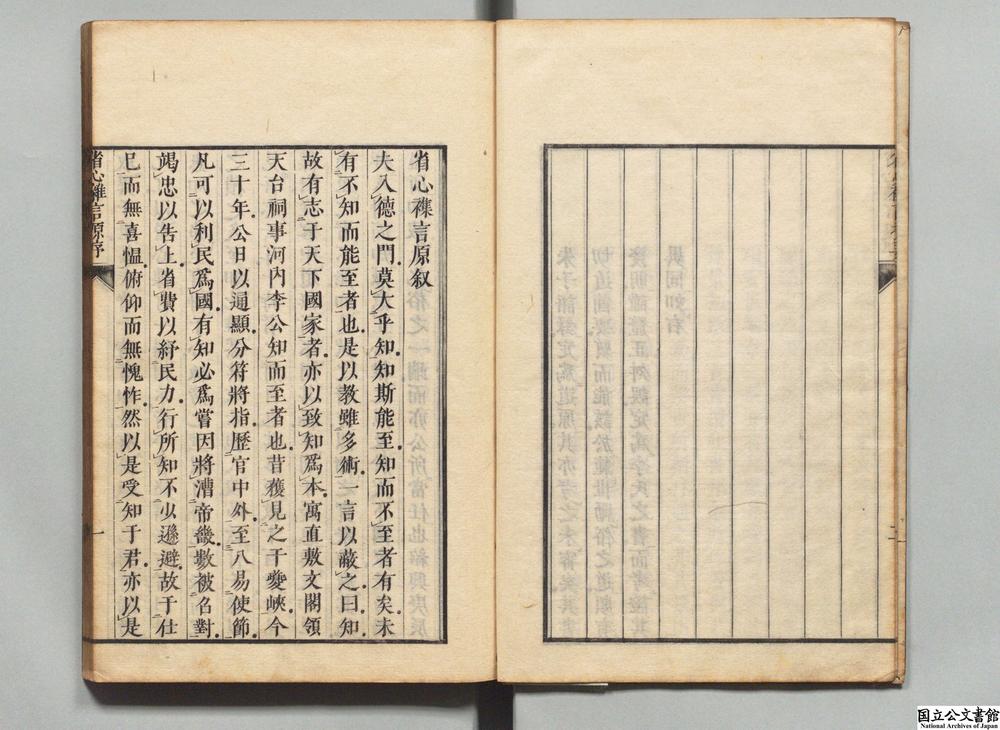 省心襍言原叙
夫入德之門莫大乎知知斯能至知而不至者有矣未
有不知而能至者也是以教雖多術一言以蔽之曰知
故有志于天下國家者亦以致知爲本寓直敷文閣領
天台祠事河内李公知而至者也昔獲見之于夔峽今
三十年公日以通顯分符將指歷官中外至八易使節
凡可以利民爲國有知必爲嘗因將漕帝畿數被名對
竭忠以告上省費以紓民力行所知不少遜避故于仕
已而無喜愠俯仰而無愧怍然以是受知于君亦以是
省心雜言原序
一
二
国立公文書館
National Archives of Japan